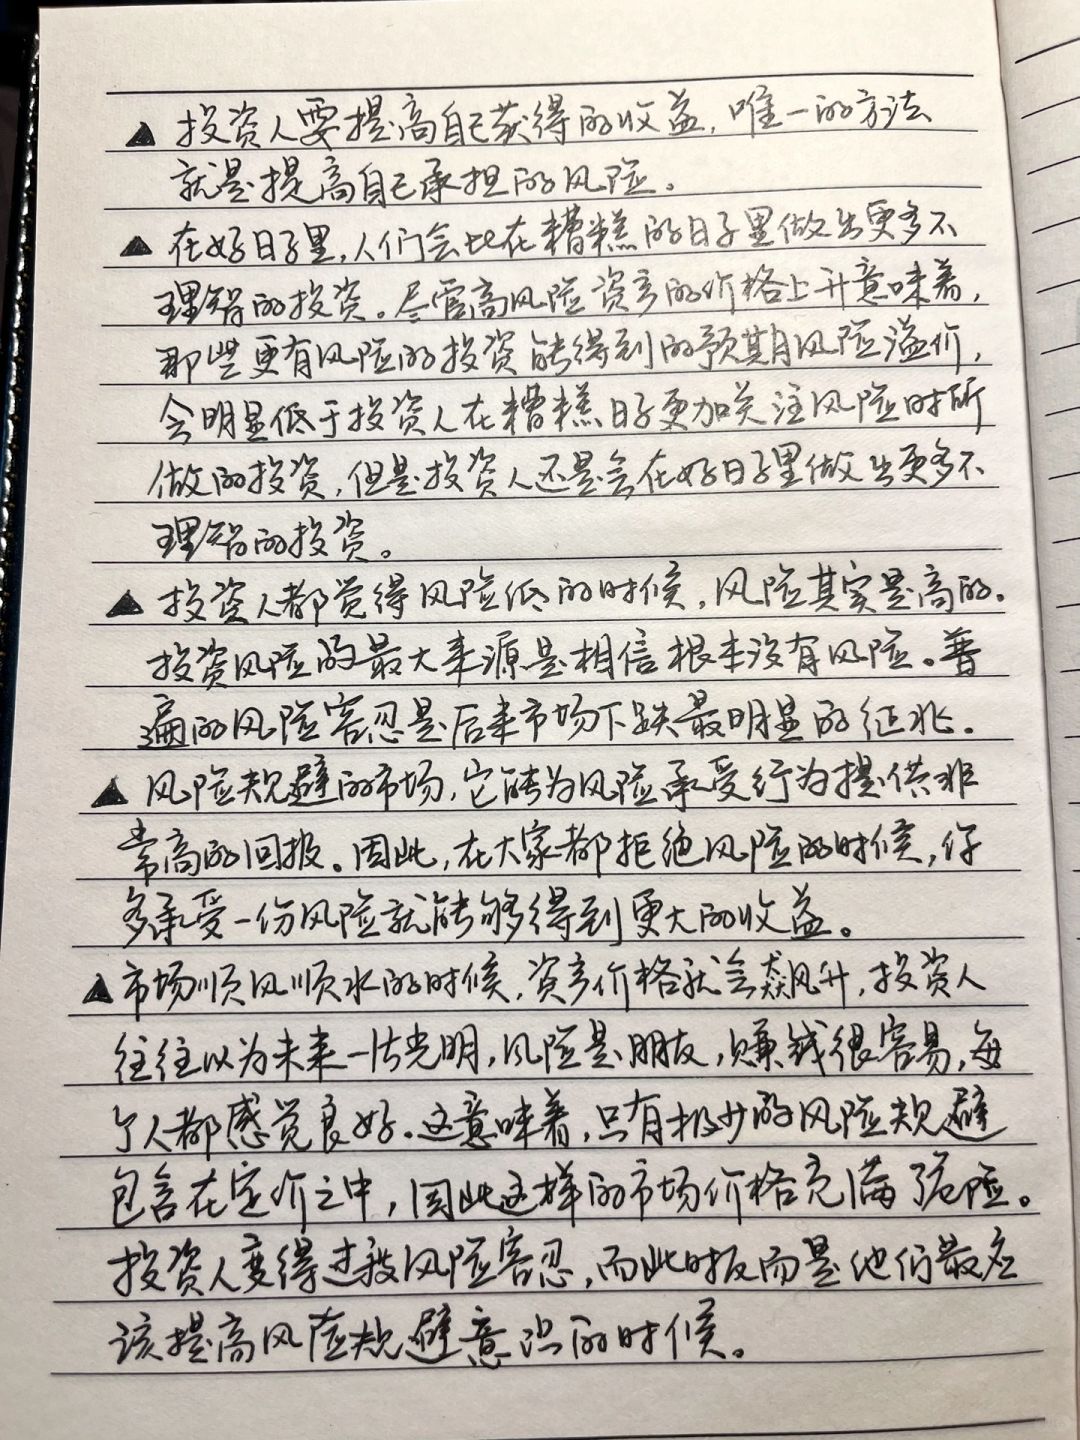 ▲ 投资人要提高自己获得的收益，唯一的方法
就是提高自己承担的风险。
▲ 在好日子里，人们会比在糟糕的日子里做出更多不
理智的投资。尽管高风险资产的价格上升意味着，
那些更有风险的投资能得到的预期风险溢价，
会明显低于投资人在糟糕日子更加关注风险时所
做的投资，但是投资人还是会在好日子里做出更多不
理智的投资。
▲ 投资人都觉得风险低的时候，风险其实是高的。
投资风险的最大来源是相信根本没有风险。普
遍的风险容忍是后来市场下跌最明显的征兆。
▲ 风险规避的市场，它能为风险承受行为提供非
常高的回报。因此，在大家都拒绝风险的时候，你
多承受一份风险就能够得到更大的收益。
▲ 市场顺风顺水的时候，资产价格就会飙升，投资人
往往以为未来一片光明，风险是朋友，赚钱很容易，每
个人都感觉良好。这意味着，只有极少的风险规避
包含在定价之中，因此这样的市场价格充满了危险。
投资人变得过我风险容忍，而此时反而是他们最应
该提高风险规避意识的时候。